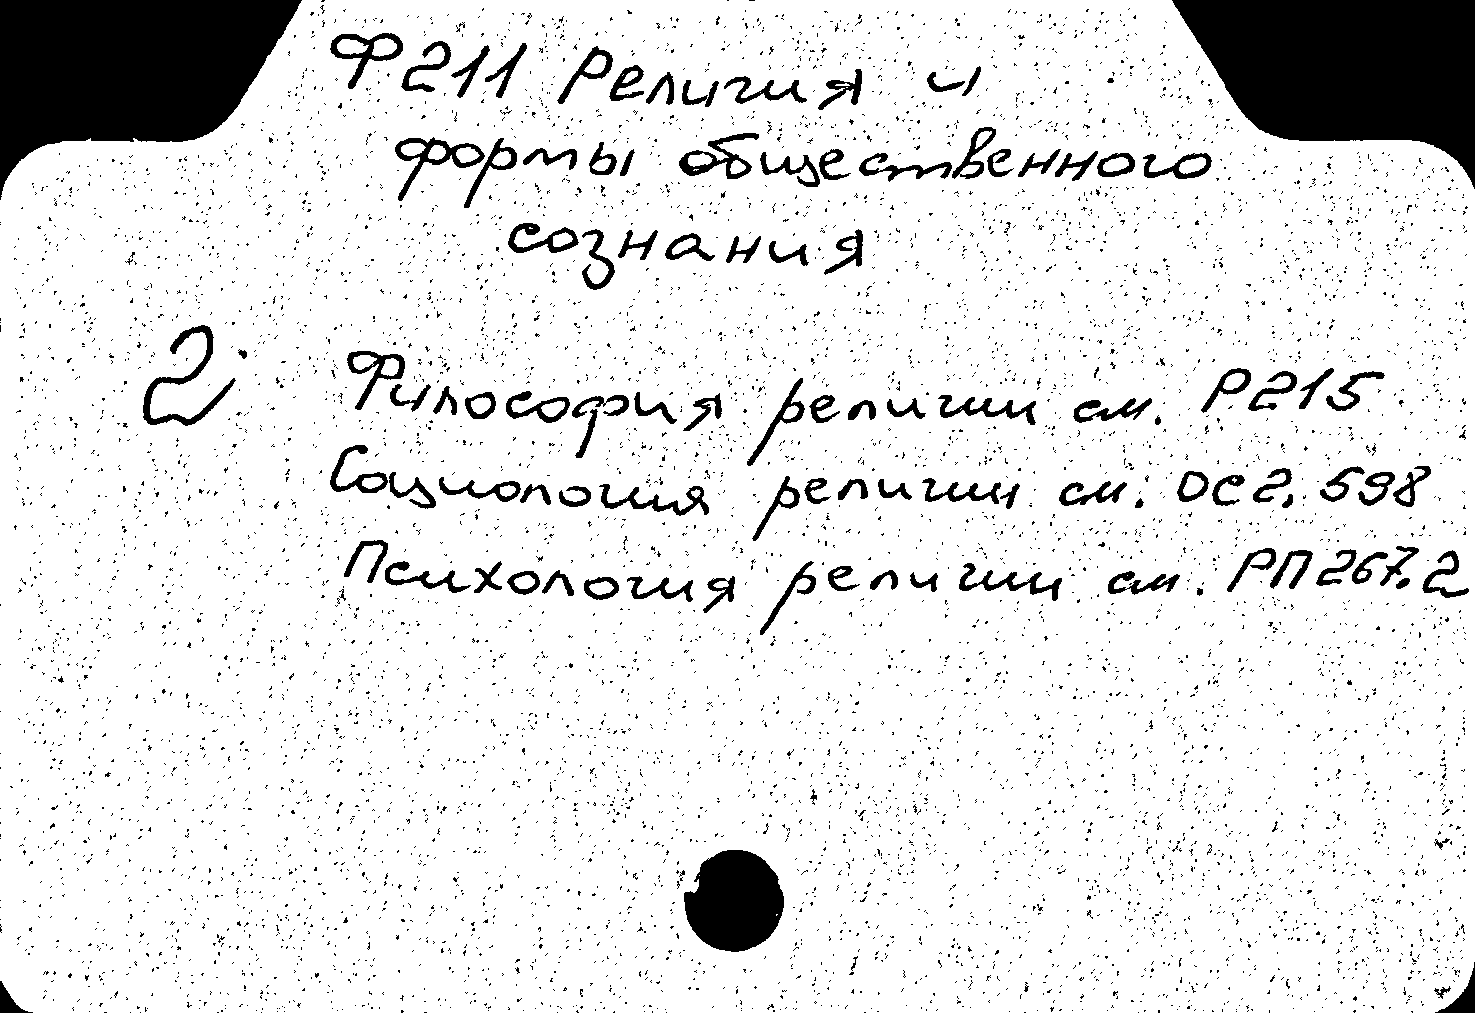 Ф211 Религия и
формы общественного
сознания
2. Философия религии см. Р215
Социология религии см. ОС2.598
Психология религии см. РП267.2